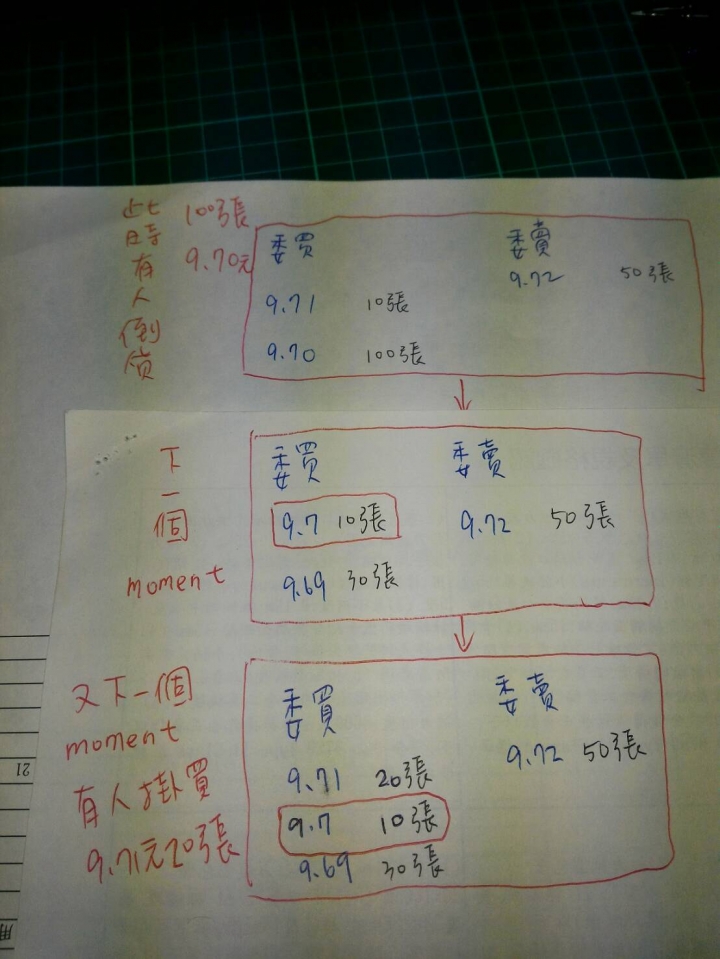 此時有人倒貨
100張
9.70元
委買 委賣
9.72 50張
9.71 10張
9.70 100張
下一個
moment
委買 委賣
9.7 10張 9.72 50張
9.69 30張
又下一個
moment
有人掛買
9.71元20張
委買 委賣
9.72 50張
9.71 20張
9.7 10張
9.69 30張
21